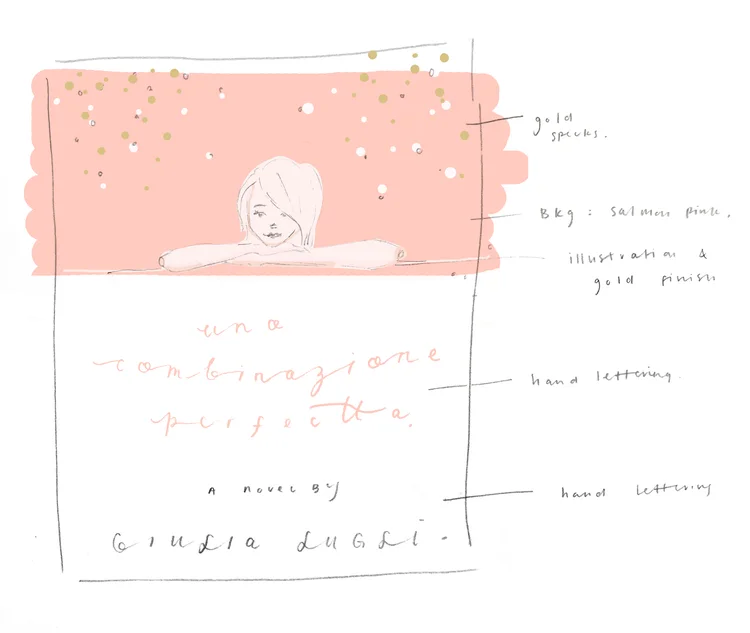 gold
specks.
Bkg : salmon pink.
illustration &
gold finish
una
combinazione
perfetta.
hand lettering.
A novel By
GIULIA LUGLI.
hand lettering